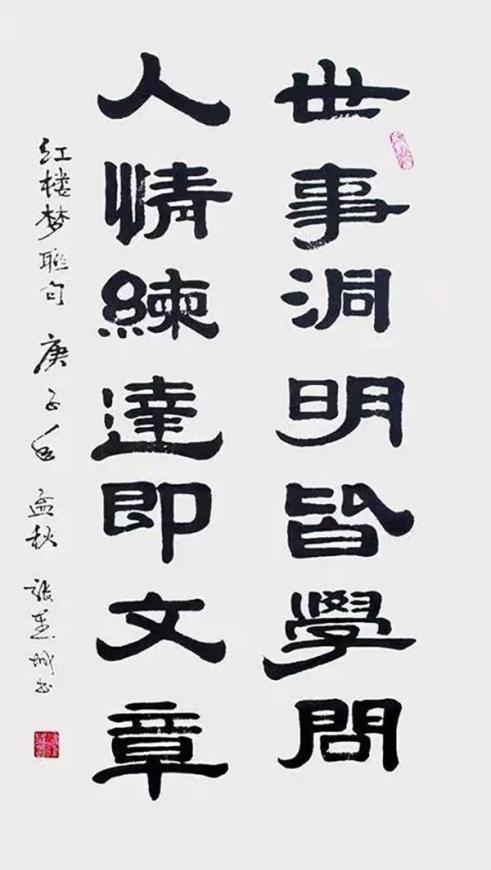 世事洞明皆學問
人情練達即文章
红楼梦联句 庚子年 孟秋 张 城书